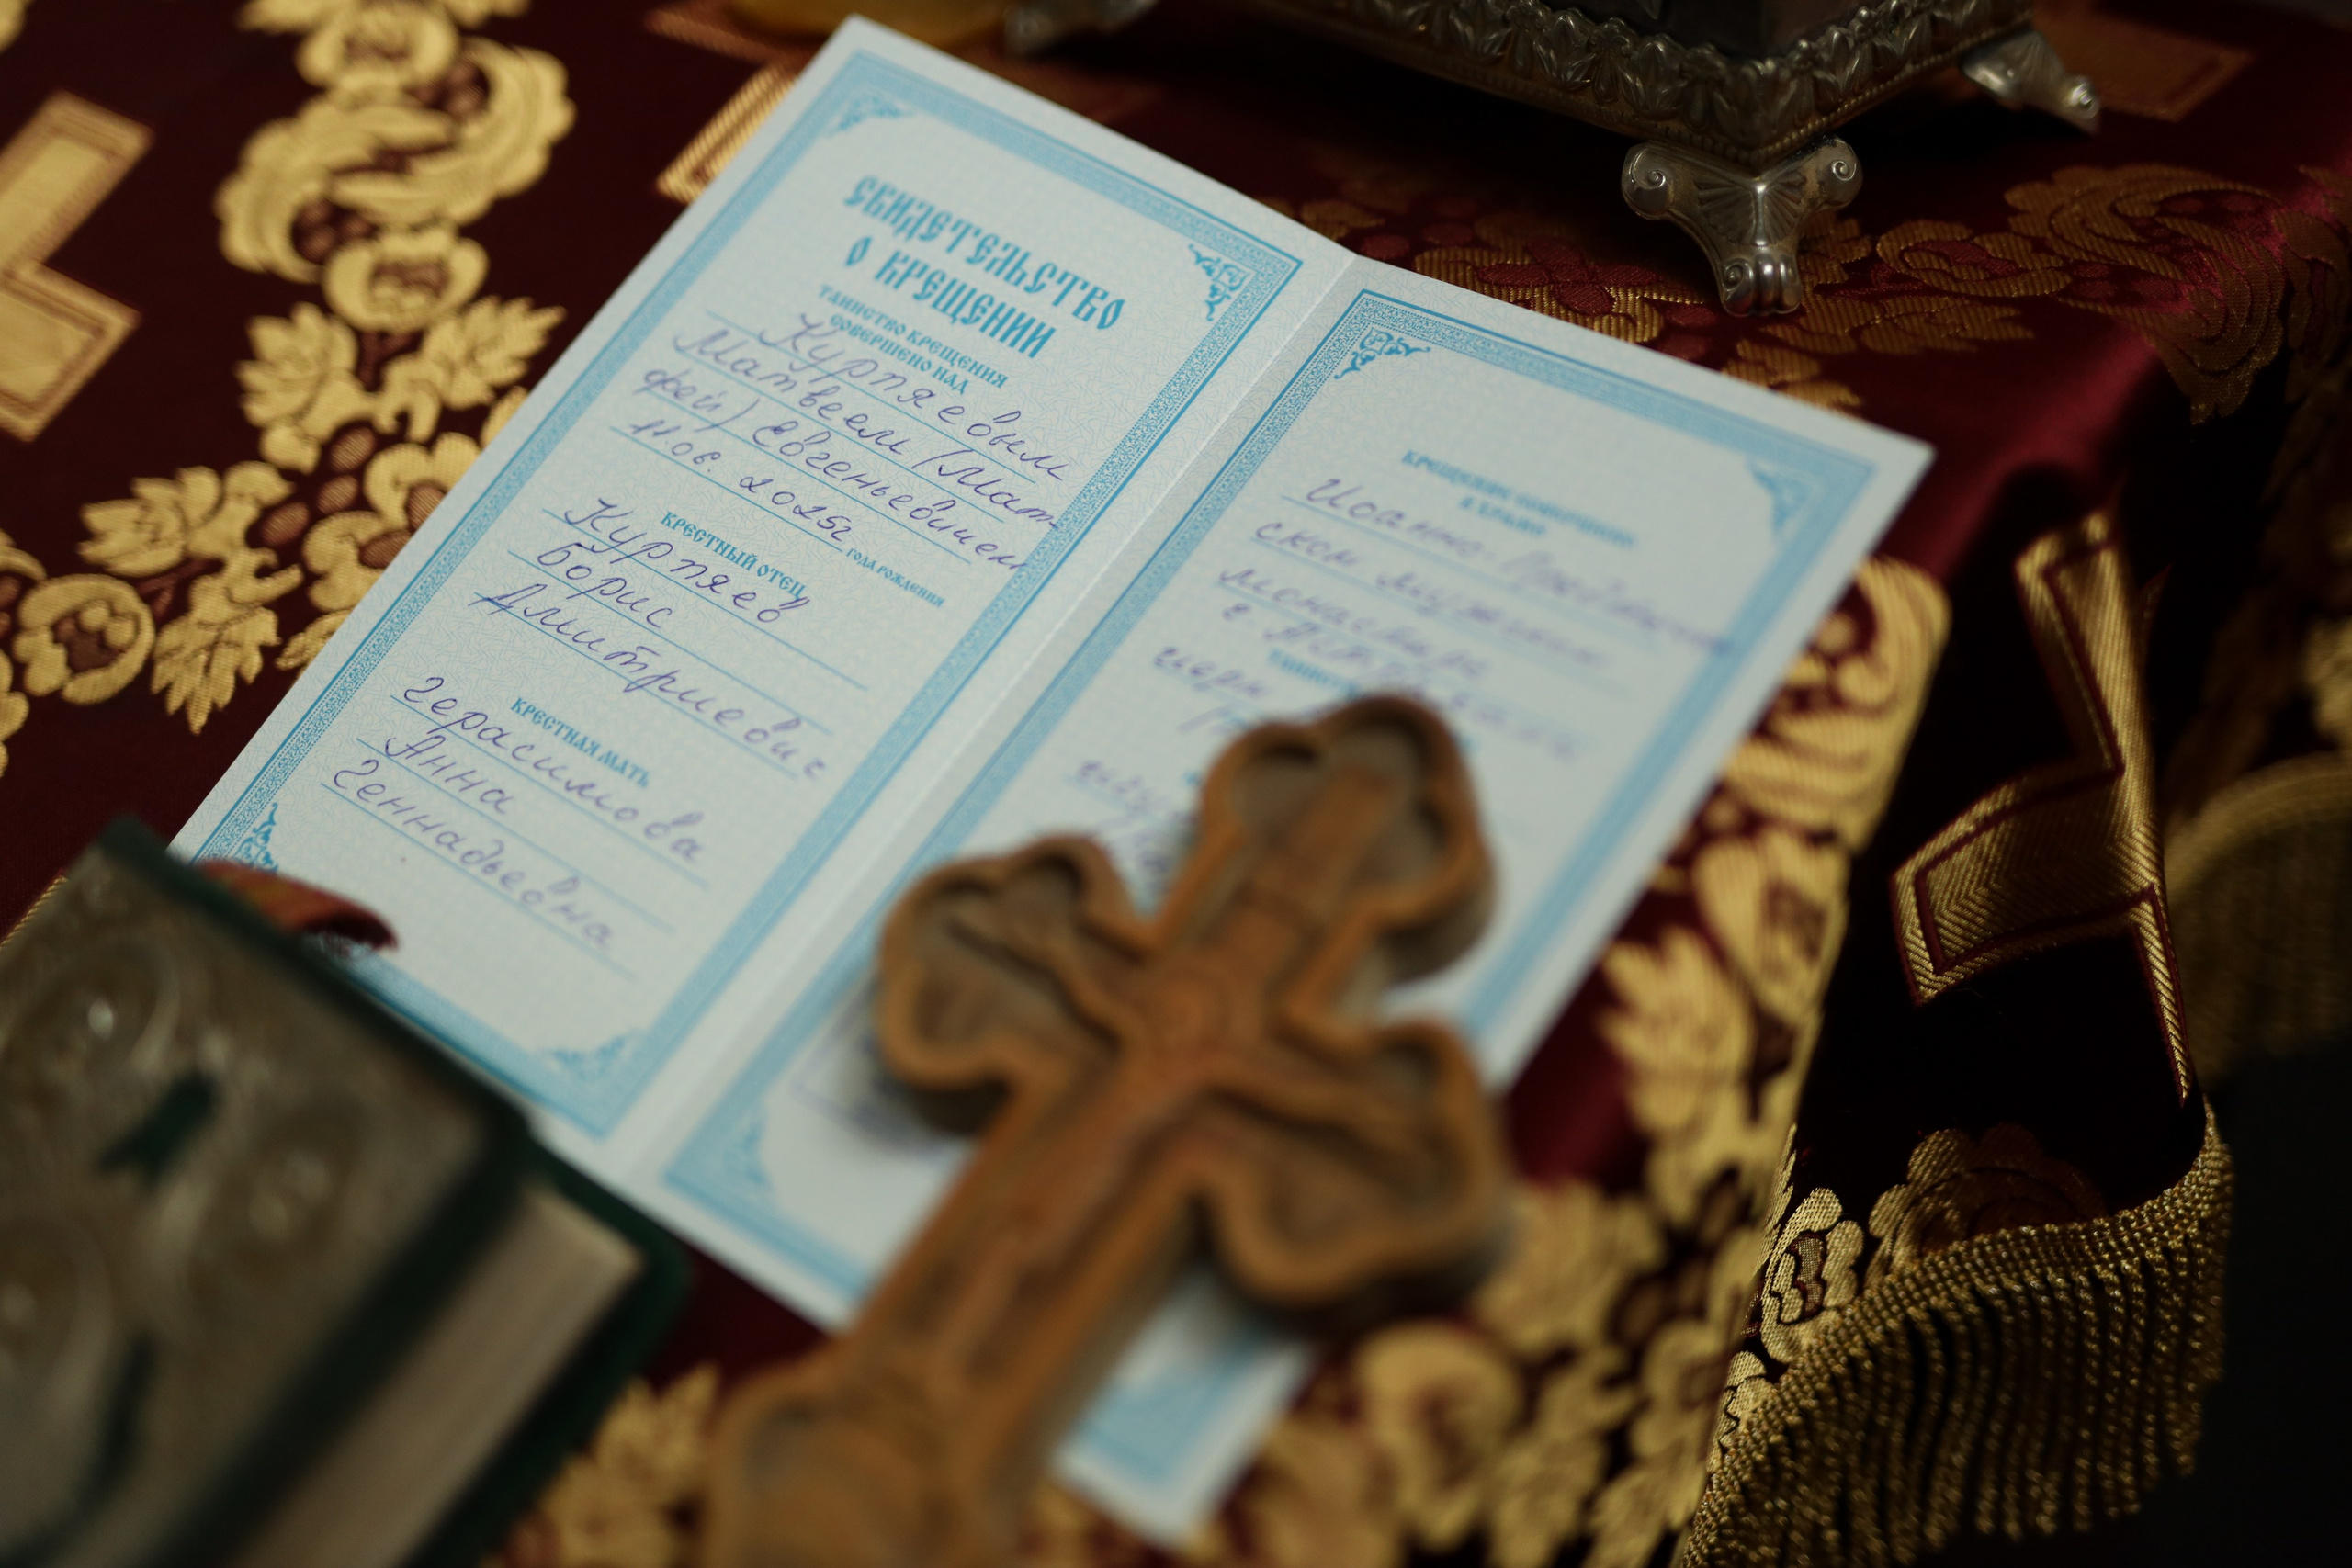 СВИДЕТЕЛЬСТВО
О КРЕЩЕНИИ
ТАИНСТВО КРЕЩЕНИЯ
СОВЕРШЕНО НАД
Курпяевым
Матвеем (Мат-
фей) Евгеньевичем
11.06. 2025г ГОДА РОЖДЕНИЯ
КРЕСТНЫЙ ОТЕЦ
Курпяев
Борис
Дмитриевич
КРЕСТНАЯ МАТЬ
Герасимова
Анна
Геннадьевна
КРЕЩЕНИЕ СОВЕРШЕНО
В ХРАМЕ
Иоанно-
ском мужском
монастыре
г.